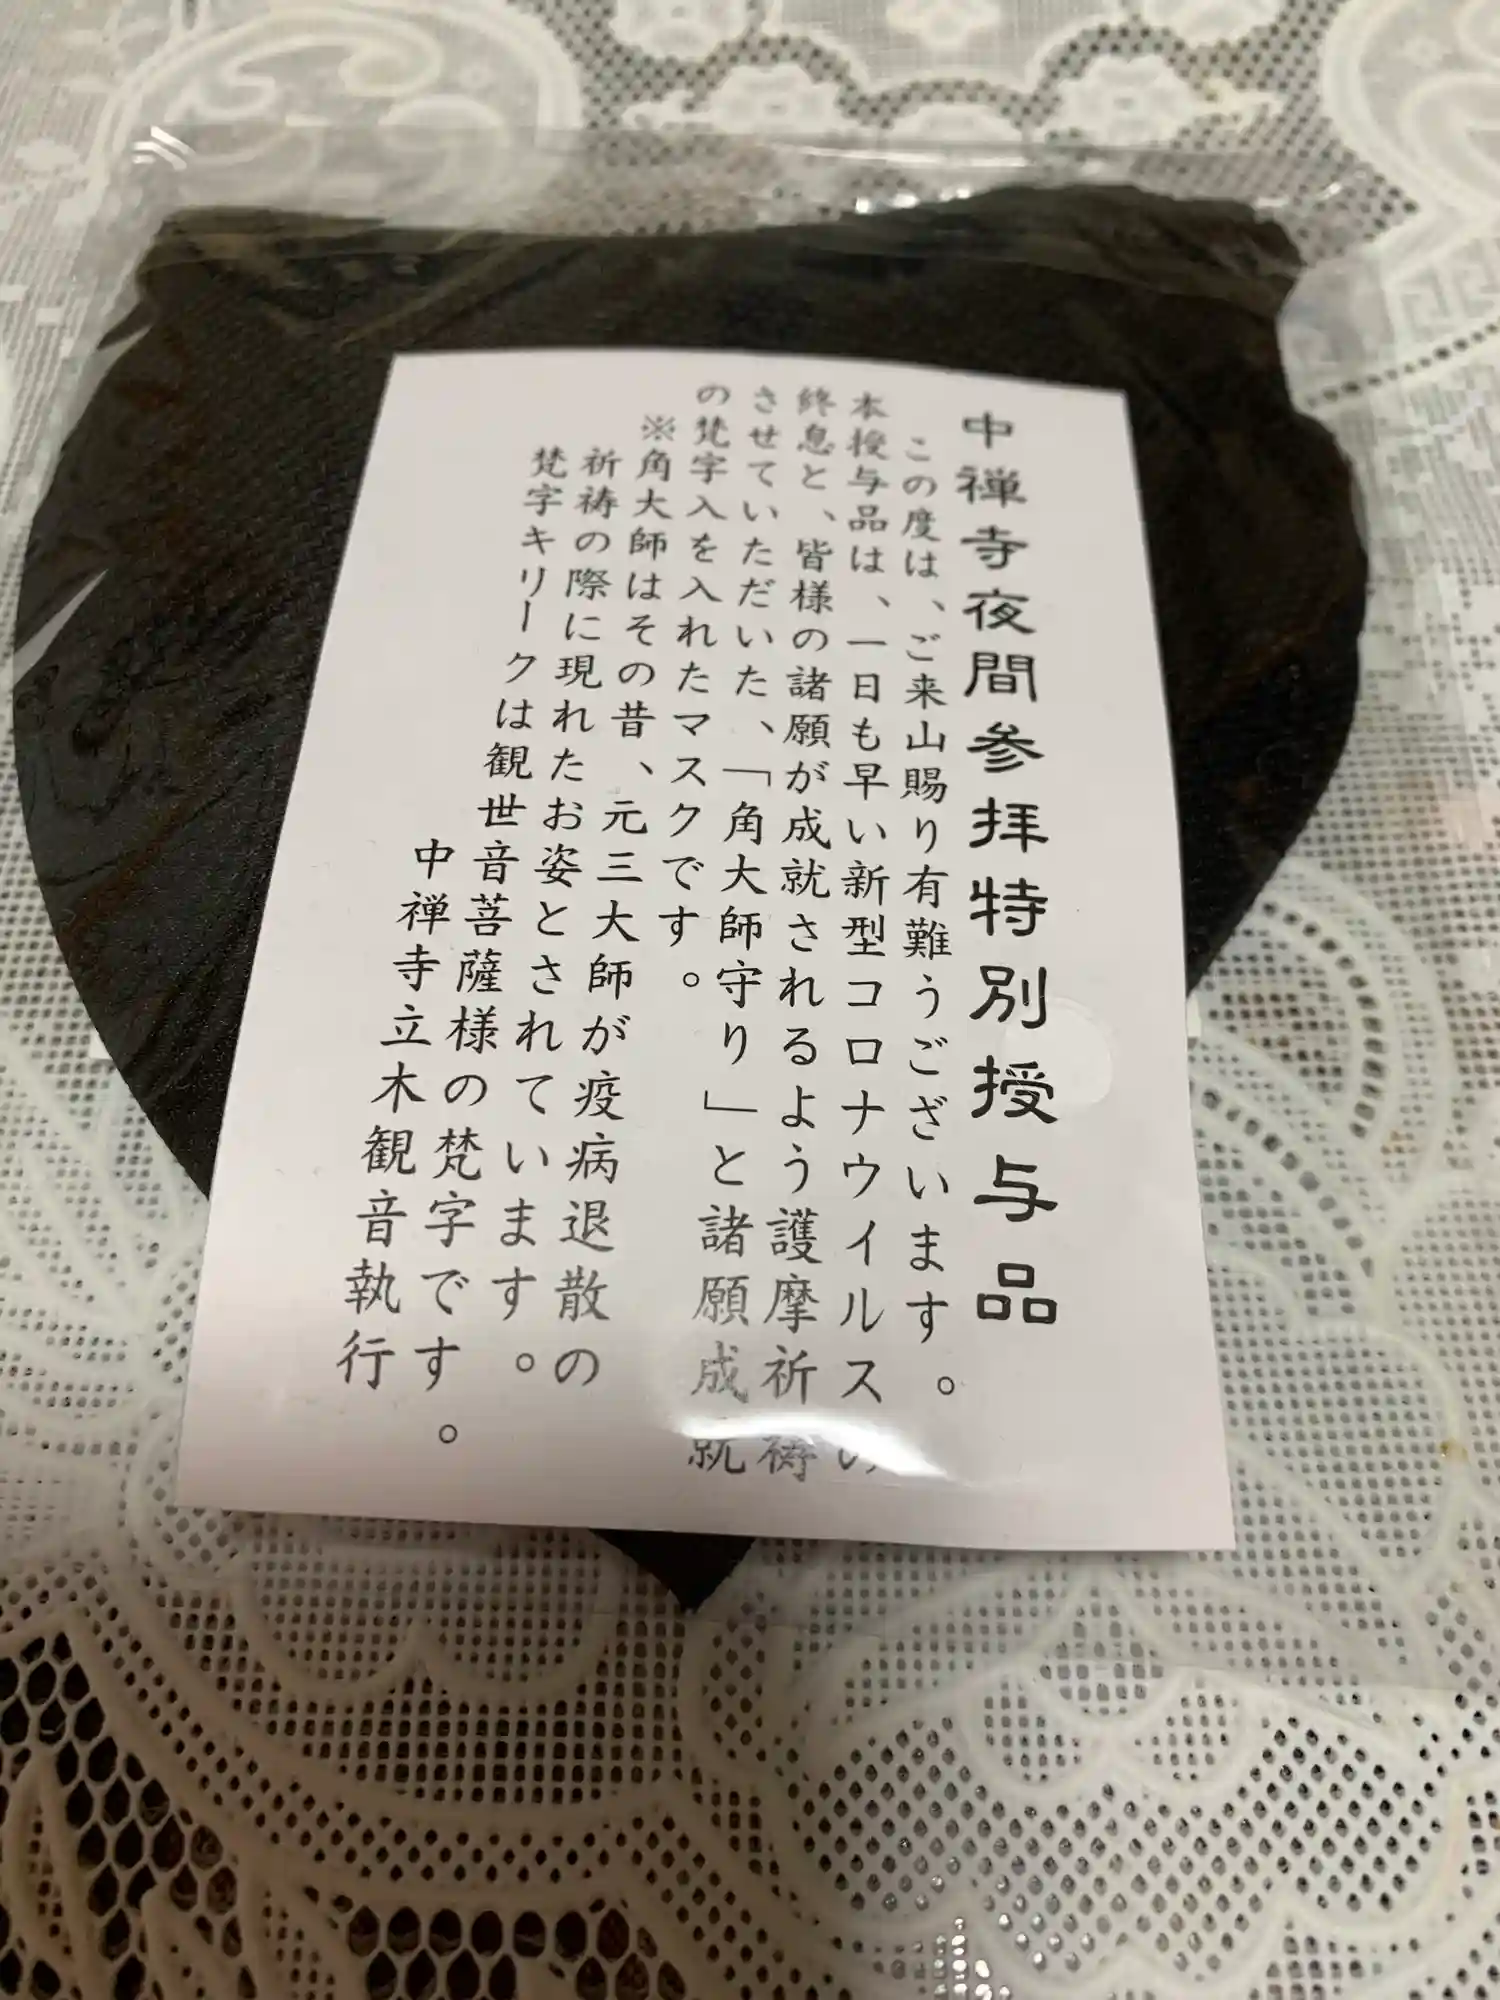 中禅寺夜間参拝特別授与品
この度は、ご来山賜り有難うございます。
本授与品は、一日も早い新型コロナウイルスの
終息と、皆様の諸願が成就されるよう護摩祈祷
させていただいた、「角大師守り」と諸願成就
の梵字入を入れたマスクです。
※角大師はその昔、元三大師が疫病退散の
祈祷の際に現れたお姿とされています。
梵字キリークは観世音菩薩様の梵字です。
中禅寺立木観音執行